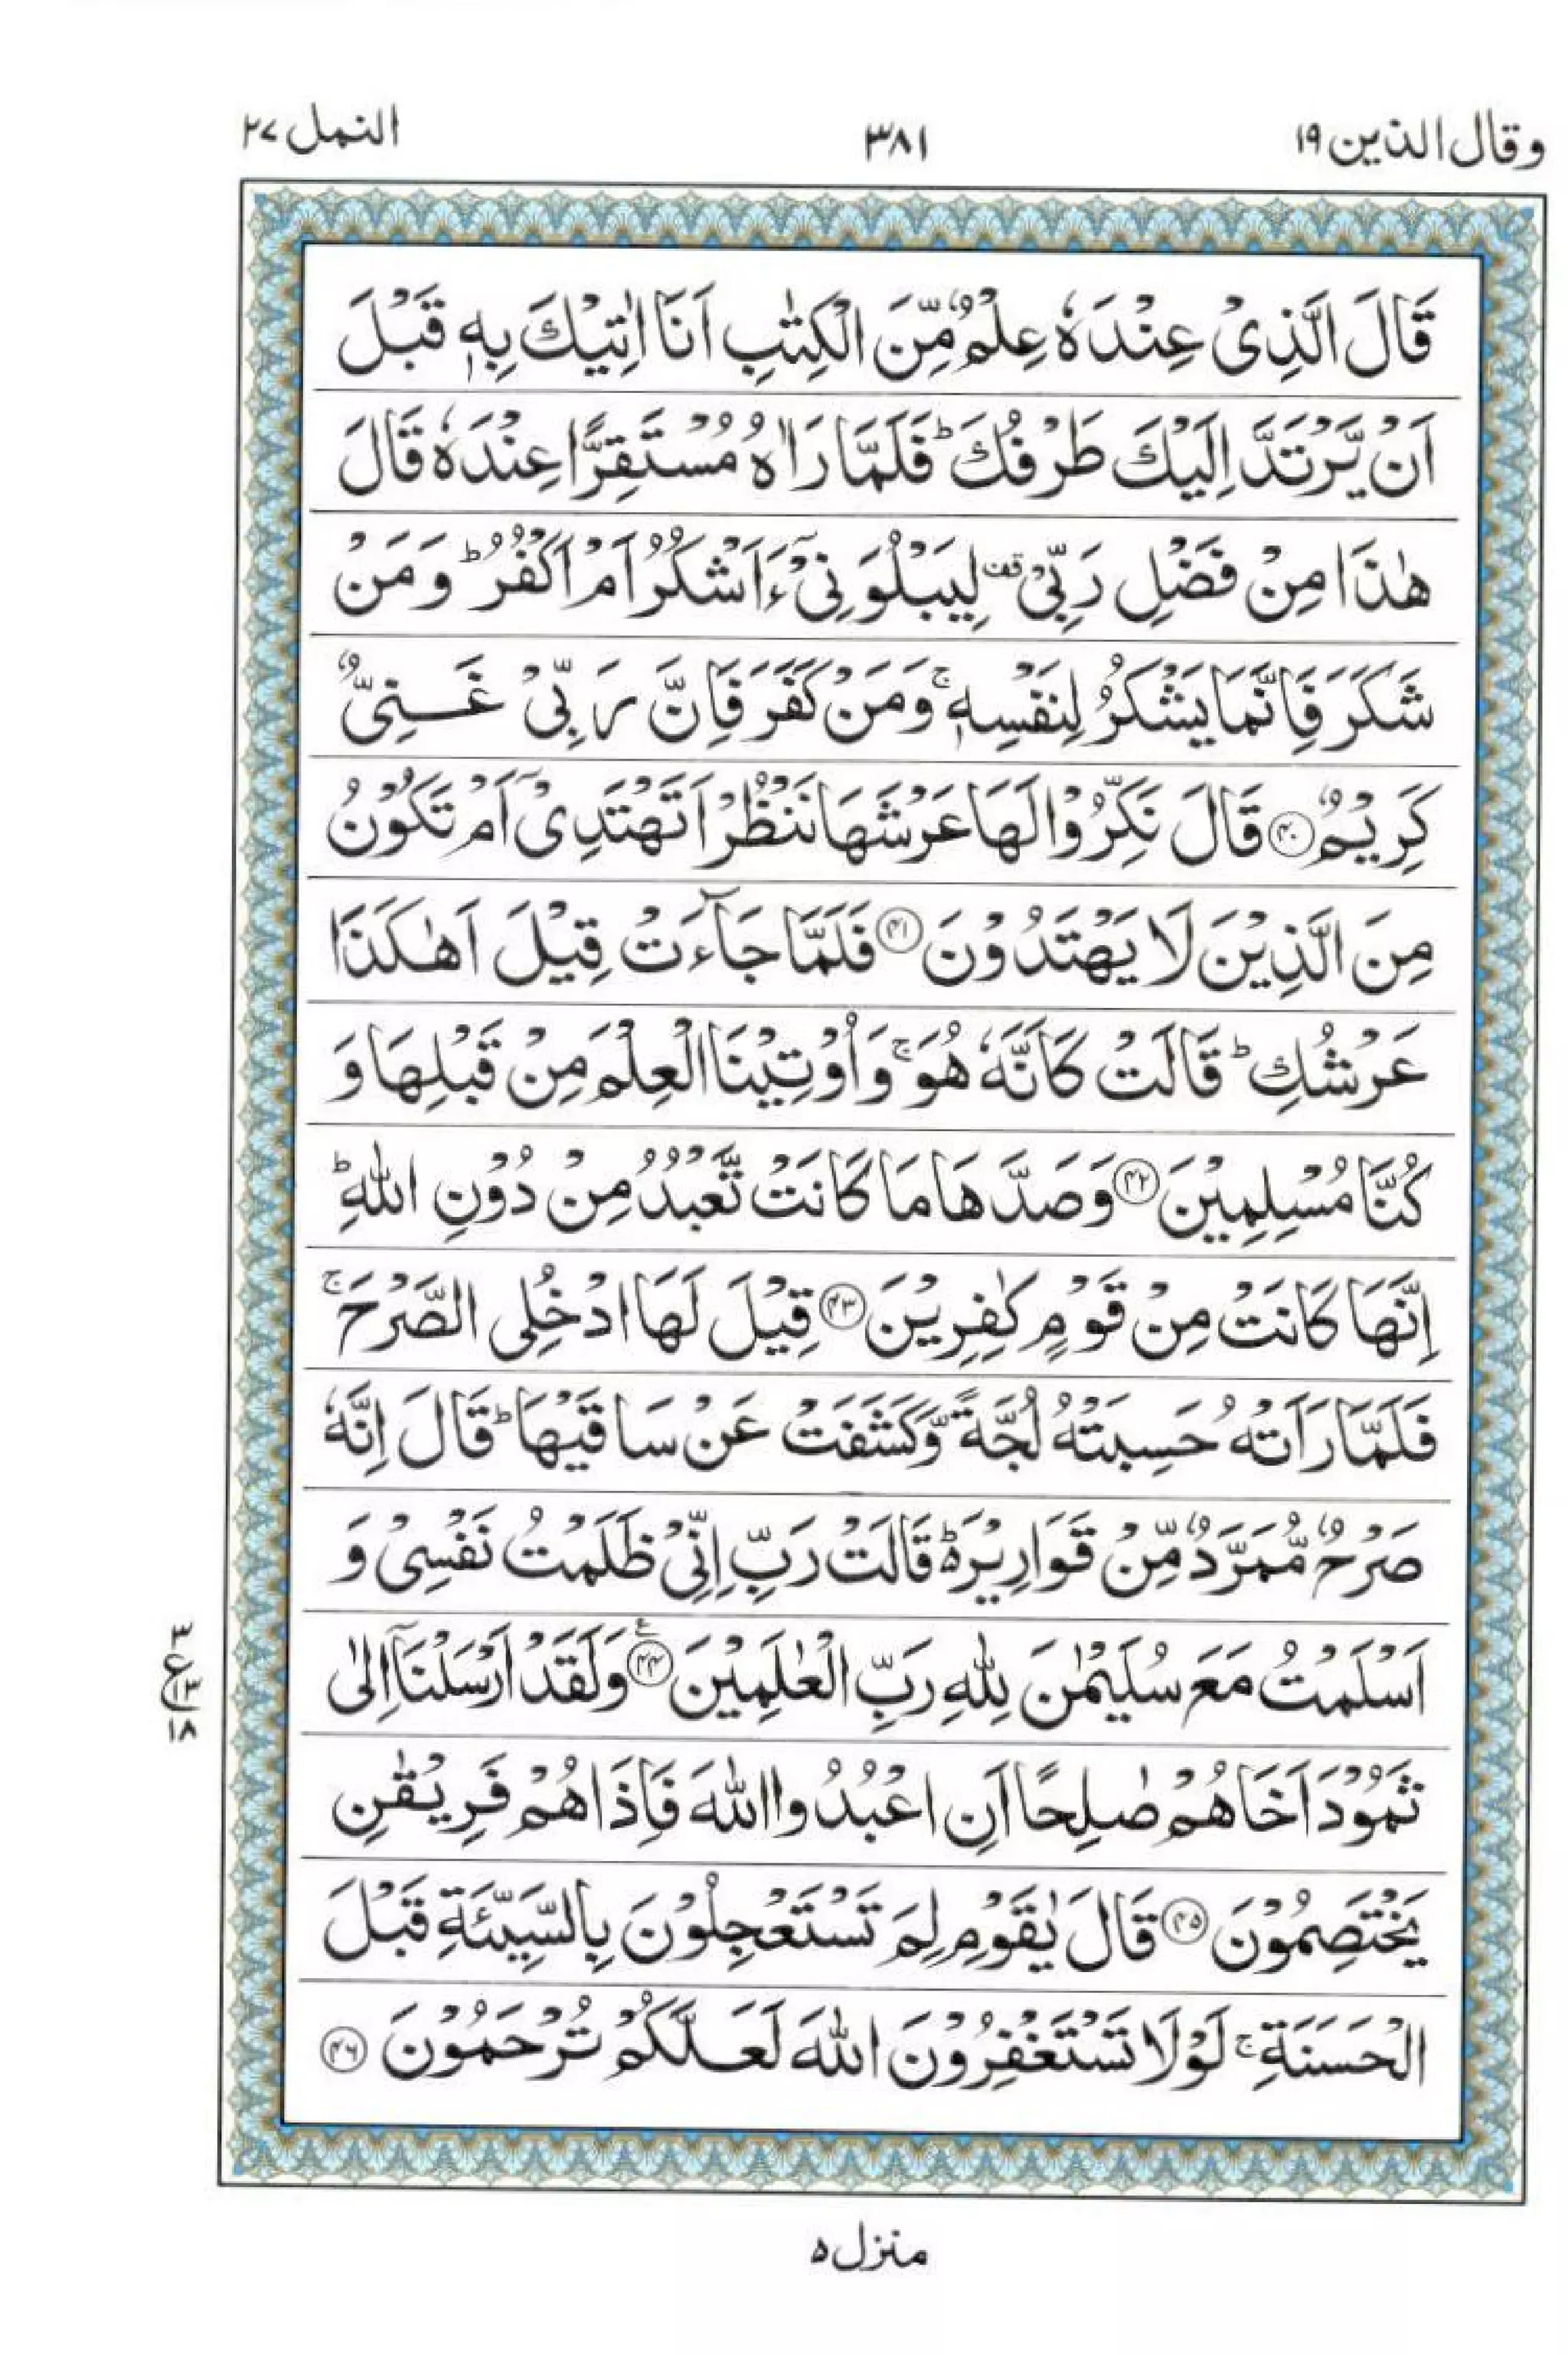 وقال الذين ١٩ ٣٨١ النمل ٢٧
قَالَ الَّذِىْ عِنْدَهٗ عِلْمٌ مِّنَ الْكِتٰبِ اَنَا اٰتِيْكَ بِهٖ قَبْلَ
اَنْ يَّرْتَدَّ اِلَيْكَ طَرْفُكَ ؕ فَلَمَّا رَاٰهُ مُسْتَقِرًّا عِنْدَهٗ قَالَ
هٰذَا مِنْ فَضْلِ رَبِّىْ ۖ لِيَبْلُوَنِىْٓ ءَاَشْكُرُ اَمْ اَكْفُرُ ؕ وَمَنْ
شَكَرَ فَاِنَّمَا يَشْكُرُ لِنَفْسِهٖ ۚ وَمَنْ كَفَرَ فَاِنَّ رَبِّىْ غَنِىٌّ
كَرِيْمٌ ﴿۴۰﴾ قَالَ نَكِّرُوْا لَهَا عَرْشَهَا نَنْظُرْ اَتَهْتَدِىْٓ اَمْ تَكُوْنُ
مِنَ الَّذِيْنَ لَا يَهْتَدُوْنَ ﴿۴۱﴾ فَلَمَّا جَآءَتْ قِيْلَ اَهٰكَذَا
عَرْشُكِ ؕ قَالَتْ كَاَنَّهٗ هُوَ ۚ وَاُوْتِيْنَا الْعِلْمَ مِنْ قَبْلِهَا وَ
كُنَّا مُسْلِمِيْنَ ﴿۴۲﴾ وَصَدَّهَا مَا كَانَتْ تَّعْبُدُ مِنْ دُوْنِ اللّٰهِ ؕ
اِنَّهَا كَانَتْ مِنْ قَوْمٍ كٰفِرِيْنَ ﴿۴۳﴾ قِيْلَ لَهَا ادْخُلِى الصَّرْحَ ۚ
فَلَمَّا رَاَتْهُ حَسِبَتْهُ لُجَّةً وَّكَشَفَتْ عَنْ سَاقَيْهَا ؕ قَالَ اِنَّهٗ
صَرْحٌ مُّمَرَّدٌ مِّنْ قَوَارِيْرَ ۬ؕ قَالَتْ رَبِّ اِنِّىْ ظَلَمْتُ نَفْسِىْ وَ
اَسْلَمْتُ مَعَ سُلَيْمٰنَ لِلّٰهِ رَبِّ الْعٰلَمِيْنَ ﴿۴۴﴾ وَلَقَدْ اَرْسَلْنَاۤ اِلٰى
ثَمُوْدَ اَخَاهُمْ صٰلِحًا اَنِ اعْبُدُوا اللّٰهَ فَاِذَا هُمْ فَرِيْقٰنِ
يَخْتَصِمُوْنَ ﴿۴۵﴾ قَالَ يٰقَوْمِ لِمَ تَسْتَعْجِلُوْنَ بِالسَّيِّئَةِ قَبْلَ
الْحَسَنَةِ ۚ لَوْلَا تَسْتَغْفِرُوْنَ اللّٰهَ لَعَلَّكُمْ تُرْحَمُوْنَ ﴿۴۶﴾
٣
ع ١٣
١٨
منزل ٥